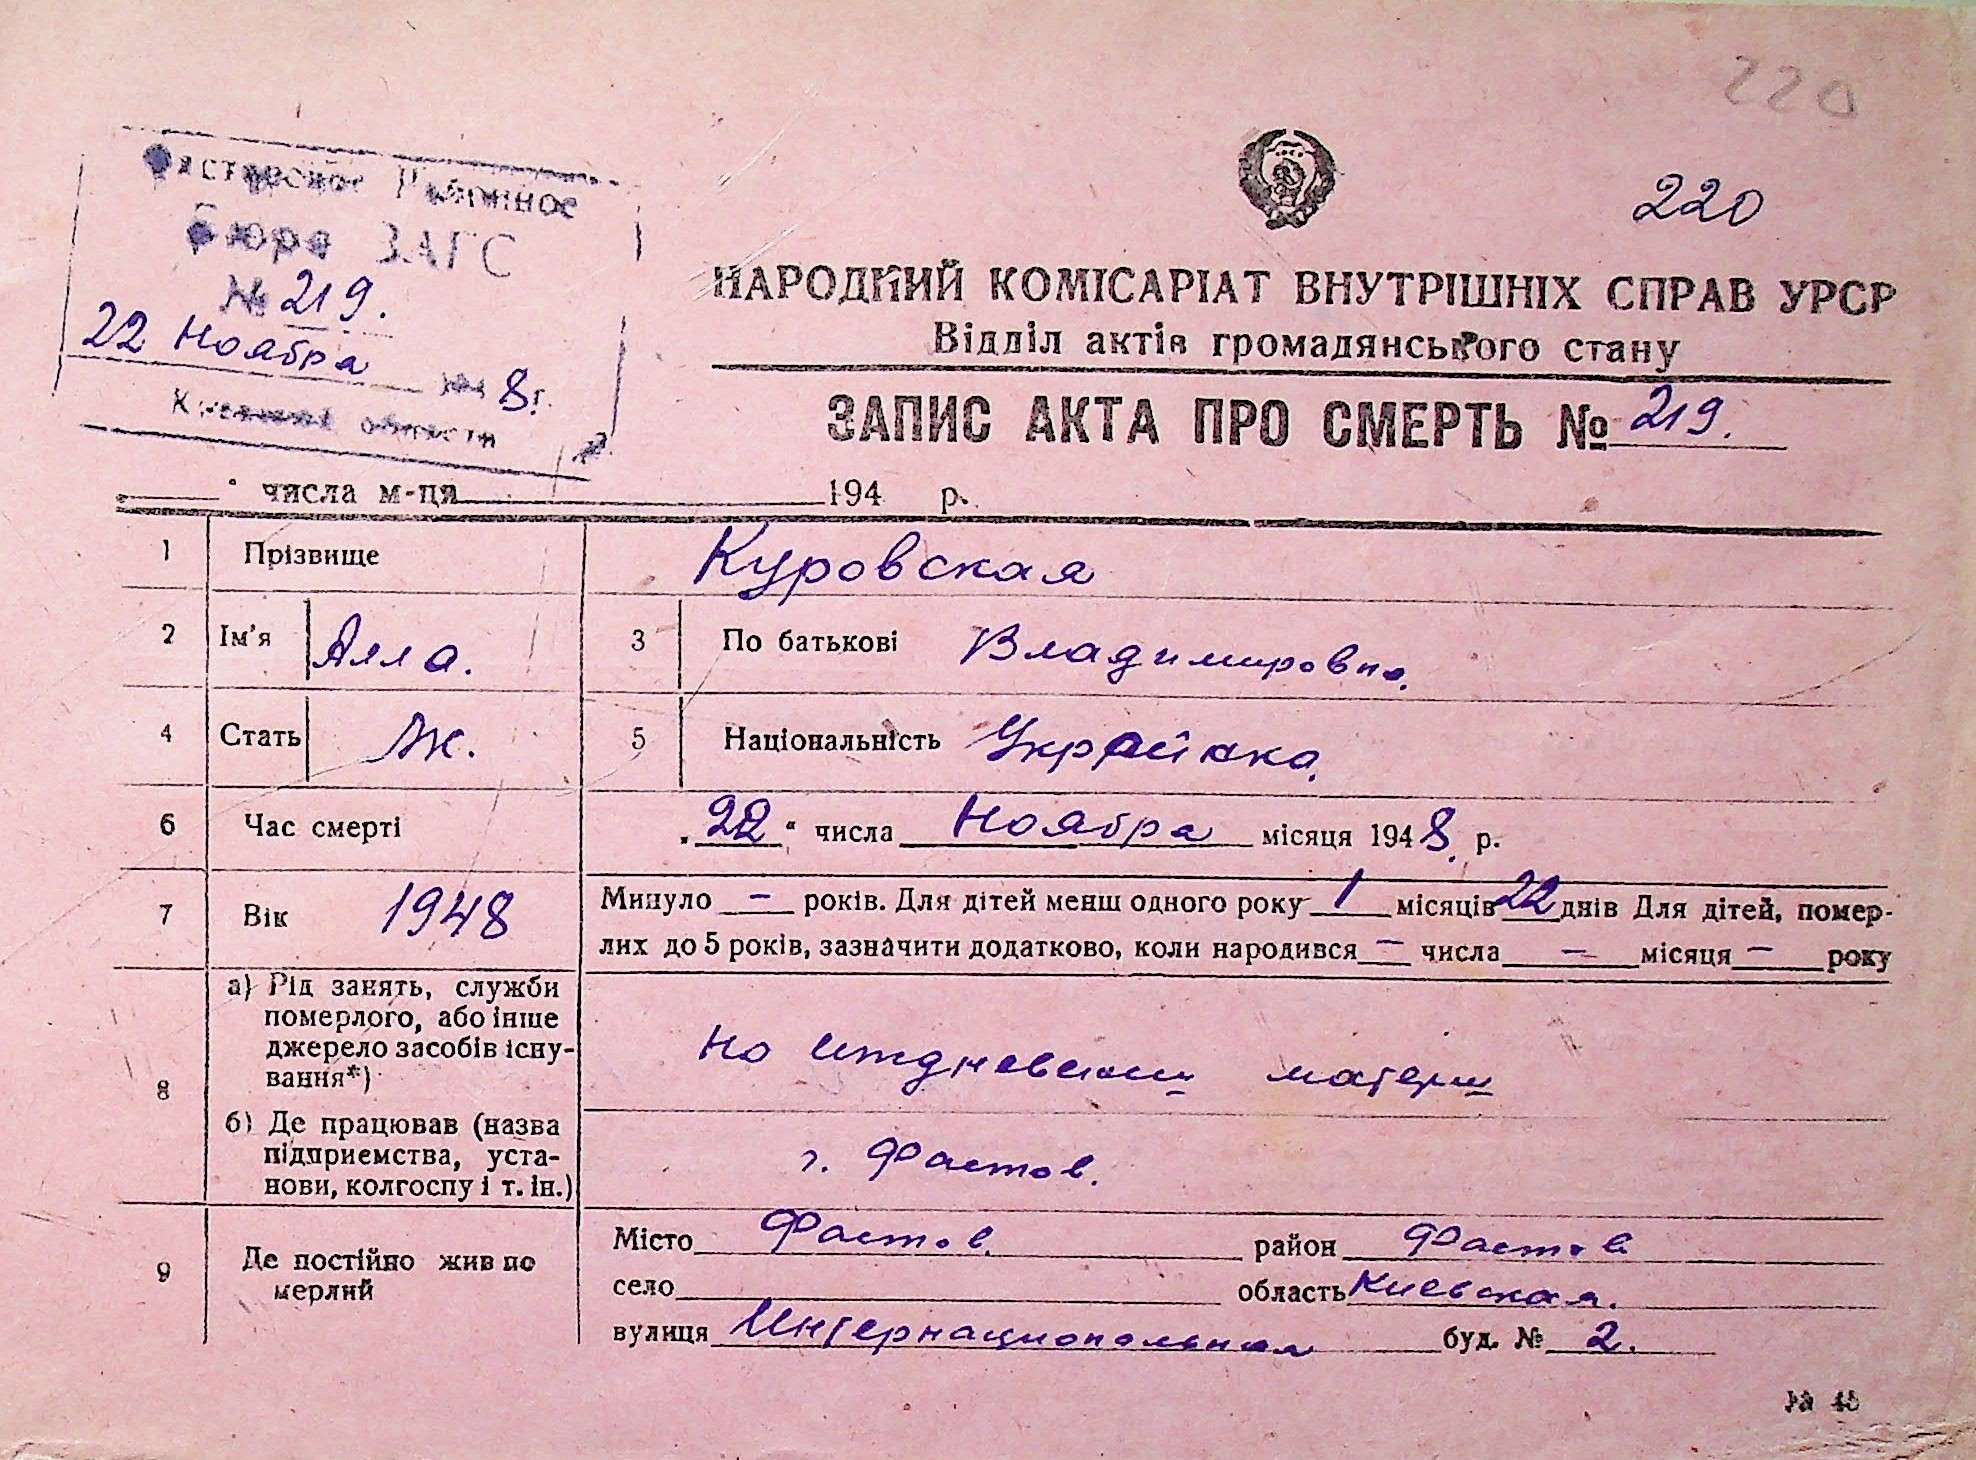 220
220
Фастовское Районное
Бюро ЗАГС
№ 219.
22 Ноября 1948 г.
Киевской области
НАРОДНИЙ КОМІСАРІАТ ВНУТРІШНІХ СПРАВ УРСР
Відділ актів громадянського стану
ЗАПИС АКТА ПРО СМЕРТЬ № 219.
числа м-ця 194 р.
1 Прізвище Куровская
2 Ім'я Алла. 3 По батькові Владимировна.
4 Стать Ж. 5 Національність Украинка.
6 Час смерті „22“ числа Ноября місяця 1948. р.
7 Вік 1948 Минуло — років. Для дітей менш одного року 1 місяців 22 днів Для дітей, помер-
лих до 5 років, зазначити додатково, коли народився — числа — місяця — року
8 а) Рід занять, служби
померлого, або інше
джерело засобів існу-
вання*)
на иждневении матери
б) Де працював (назва
підприемства, уста-
нови, колгоспу і т. ін.)
г. Фастов.
9 Де постійно жив по
мерлий
Місто Фастов. район Фастов
село область Киевская.
вулиця Интернациональная буд. № 2.